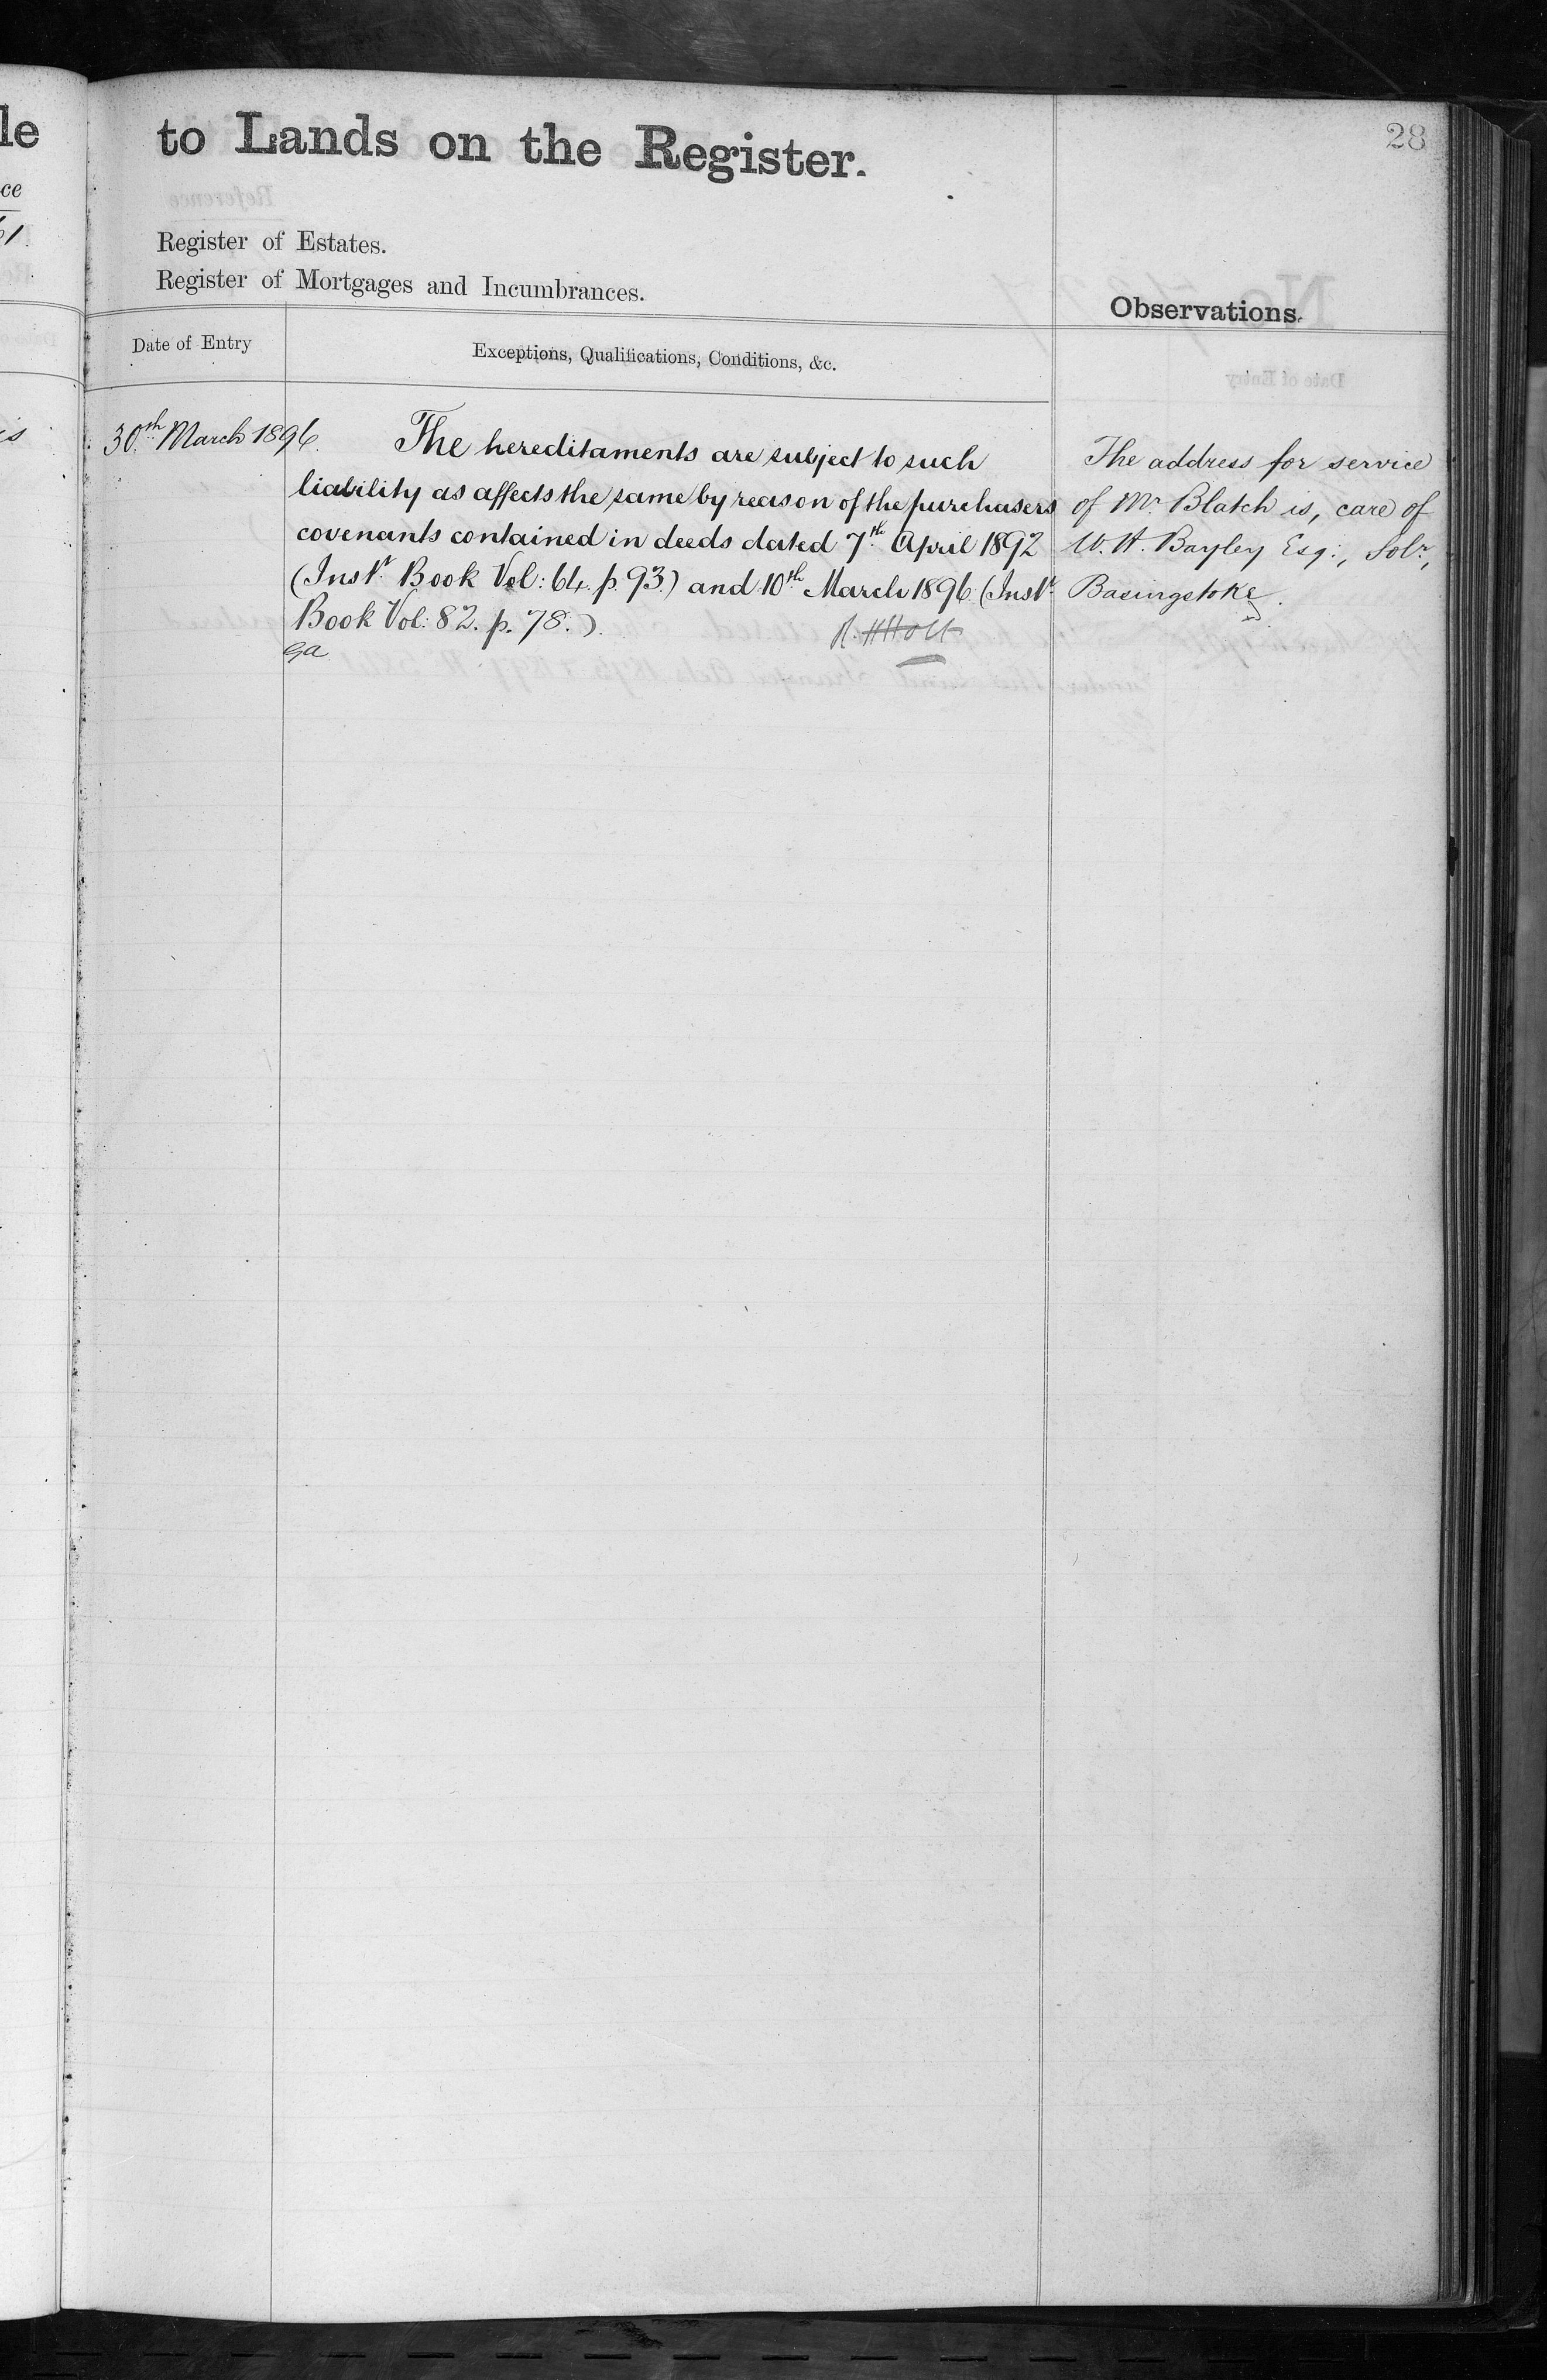 28
to Lands on the Register.
Register of Estates.
Register of Mortgages and Incumbrances.
Observations.
Date of Entry
Exceptions, Qualifications, Conditions, &c.
30th March 1896.
The hereditaments are subject to such
liability as affects the same by reason of the purchasers
covenants contained in deeds dated 7th April 1892
(Instt Book Vol: 64. p. 93.) and 10th March 1896 (Instt
Book Vol: 82. p. 78.)
R. H Holt
The address for service
of Mr Blatch is, care of
W. H. Bayley Esq:, Solr,
Basingstoke.